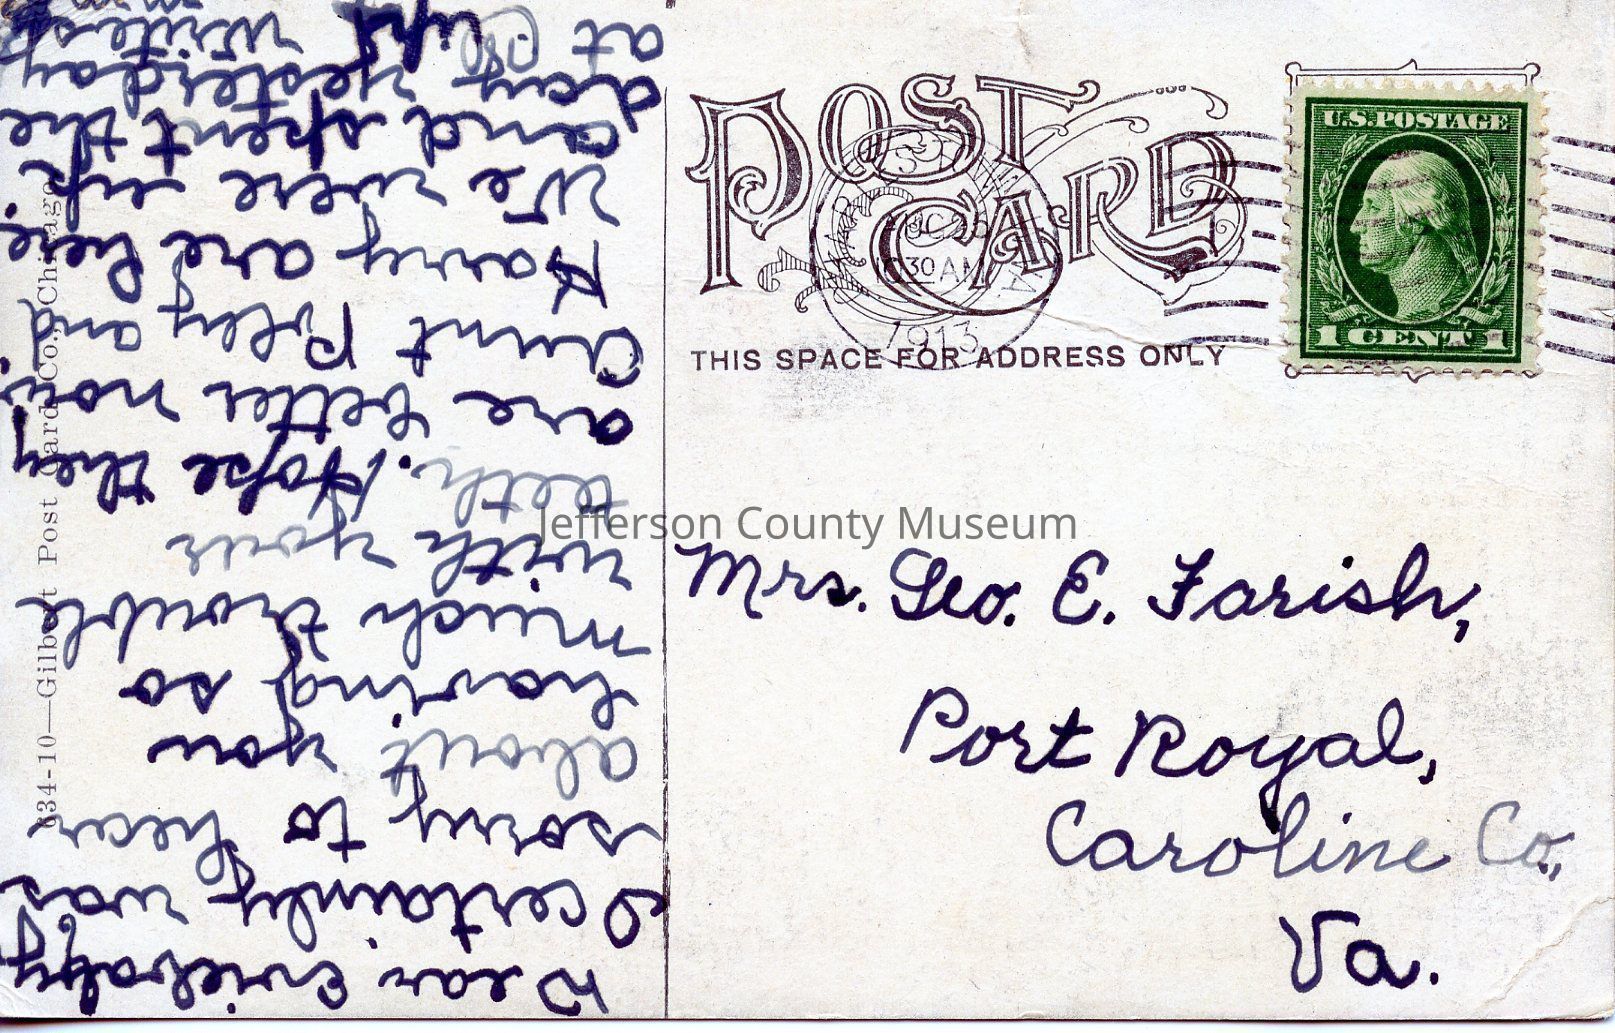 Dear Everbody,
I certainly was
sorry to hear
about you
having so
much trouble
with your
teeth. Hope they
are better now.
Aunt Polly and
Harry are here.
We were up
and spent the
day yesterday
at
POST CARD
1030 AM
1913
THIS SPACE FOR ADDRESS ONLY
U.S. POSTAGE
1 CENT 1
Mrs. Geo. E. Farish,
Port Royal,
Caroline Co.,
Va.
634-10—Gilbert Post Card Co., Chicago
Jefferson County Museum